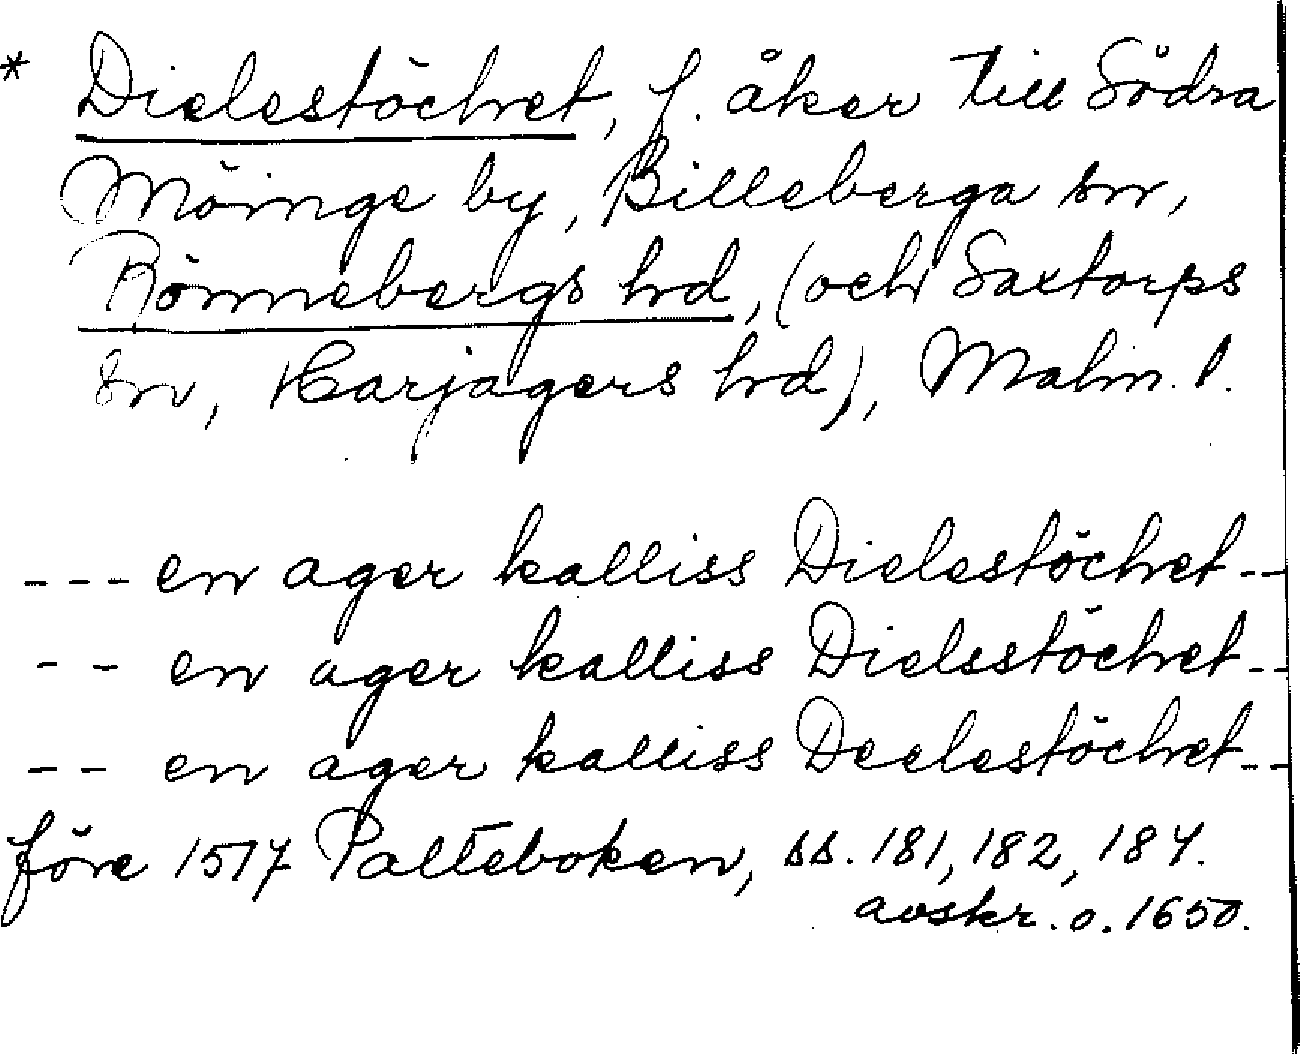 * Dielestöchet, f. åker till Södra
Möinge by, Billeberga sn,
Rönnebergs hd, (och Saxtorps
sn, Harjagers hd), Malm. l.
--- en ager kalliss Dielestöchet--
-- en ager kalliss Dielestöchet--
-- en ager kalliss Deelestöchet--
före 1517 Palteboken, ss. 181, 182, 184.
avskr. o. 1650.